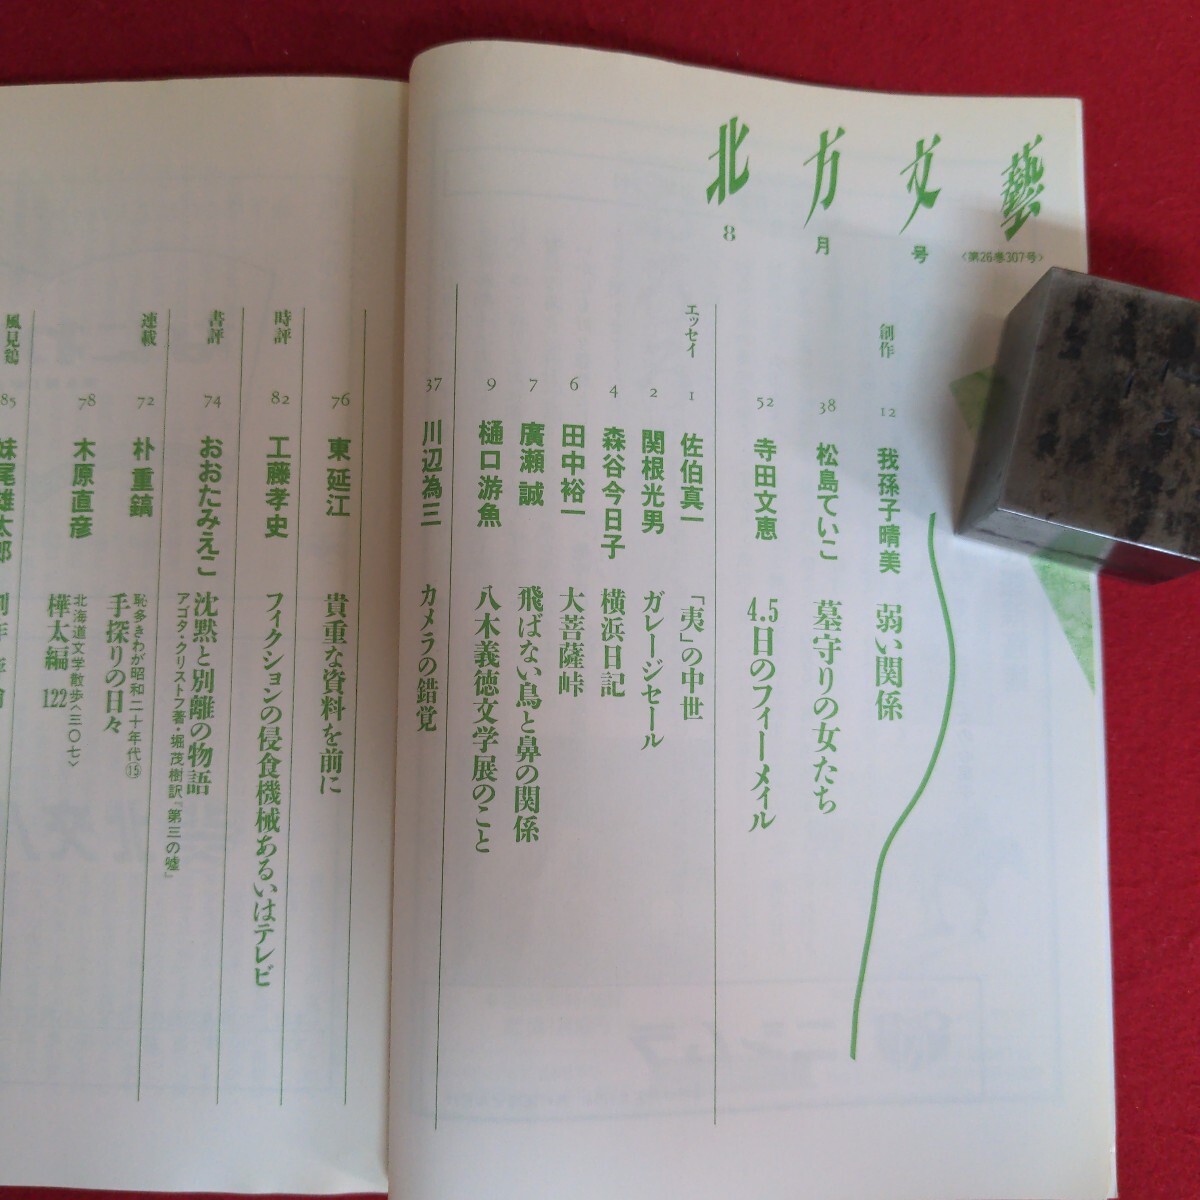 北方文藝
8月号
〈第26巻307号〉
創作
12 我孫子晴美 弱い関係
38 松島ていこ 墓守りの女たち
52 寺田文恵 4.5日のフィーメイル
エッセイ
1 佐伯真一 「夷」の中世
2 関根光男 ガレージセール
4 森谷今日子 横浜日記
6 田中裕一 大菩薩峠
7 廣瀬誠 飛ばない鳥と鼻の関係
9 樋口游魚 八木義徳文学展のこと
37 川辺為三 カメラの錯覚
76 東延江 貴重な資料を前に
時評
82 工藤孝史 フィクションの侵食機械あるいはテレビ
書評
74 おおたみえこ 沈黙と別離の物語
アゴタ・クリストフ著・堀茂樹訳『第三の嘘』
連載
72 朴重鎬 恥多きわが昭和二十年代⑮
手探りの日々
78 木原直彦 北海道文学散歩〈三〇七〉
樺太編 122
風見鶏
85 妹尾雄太郎